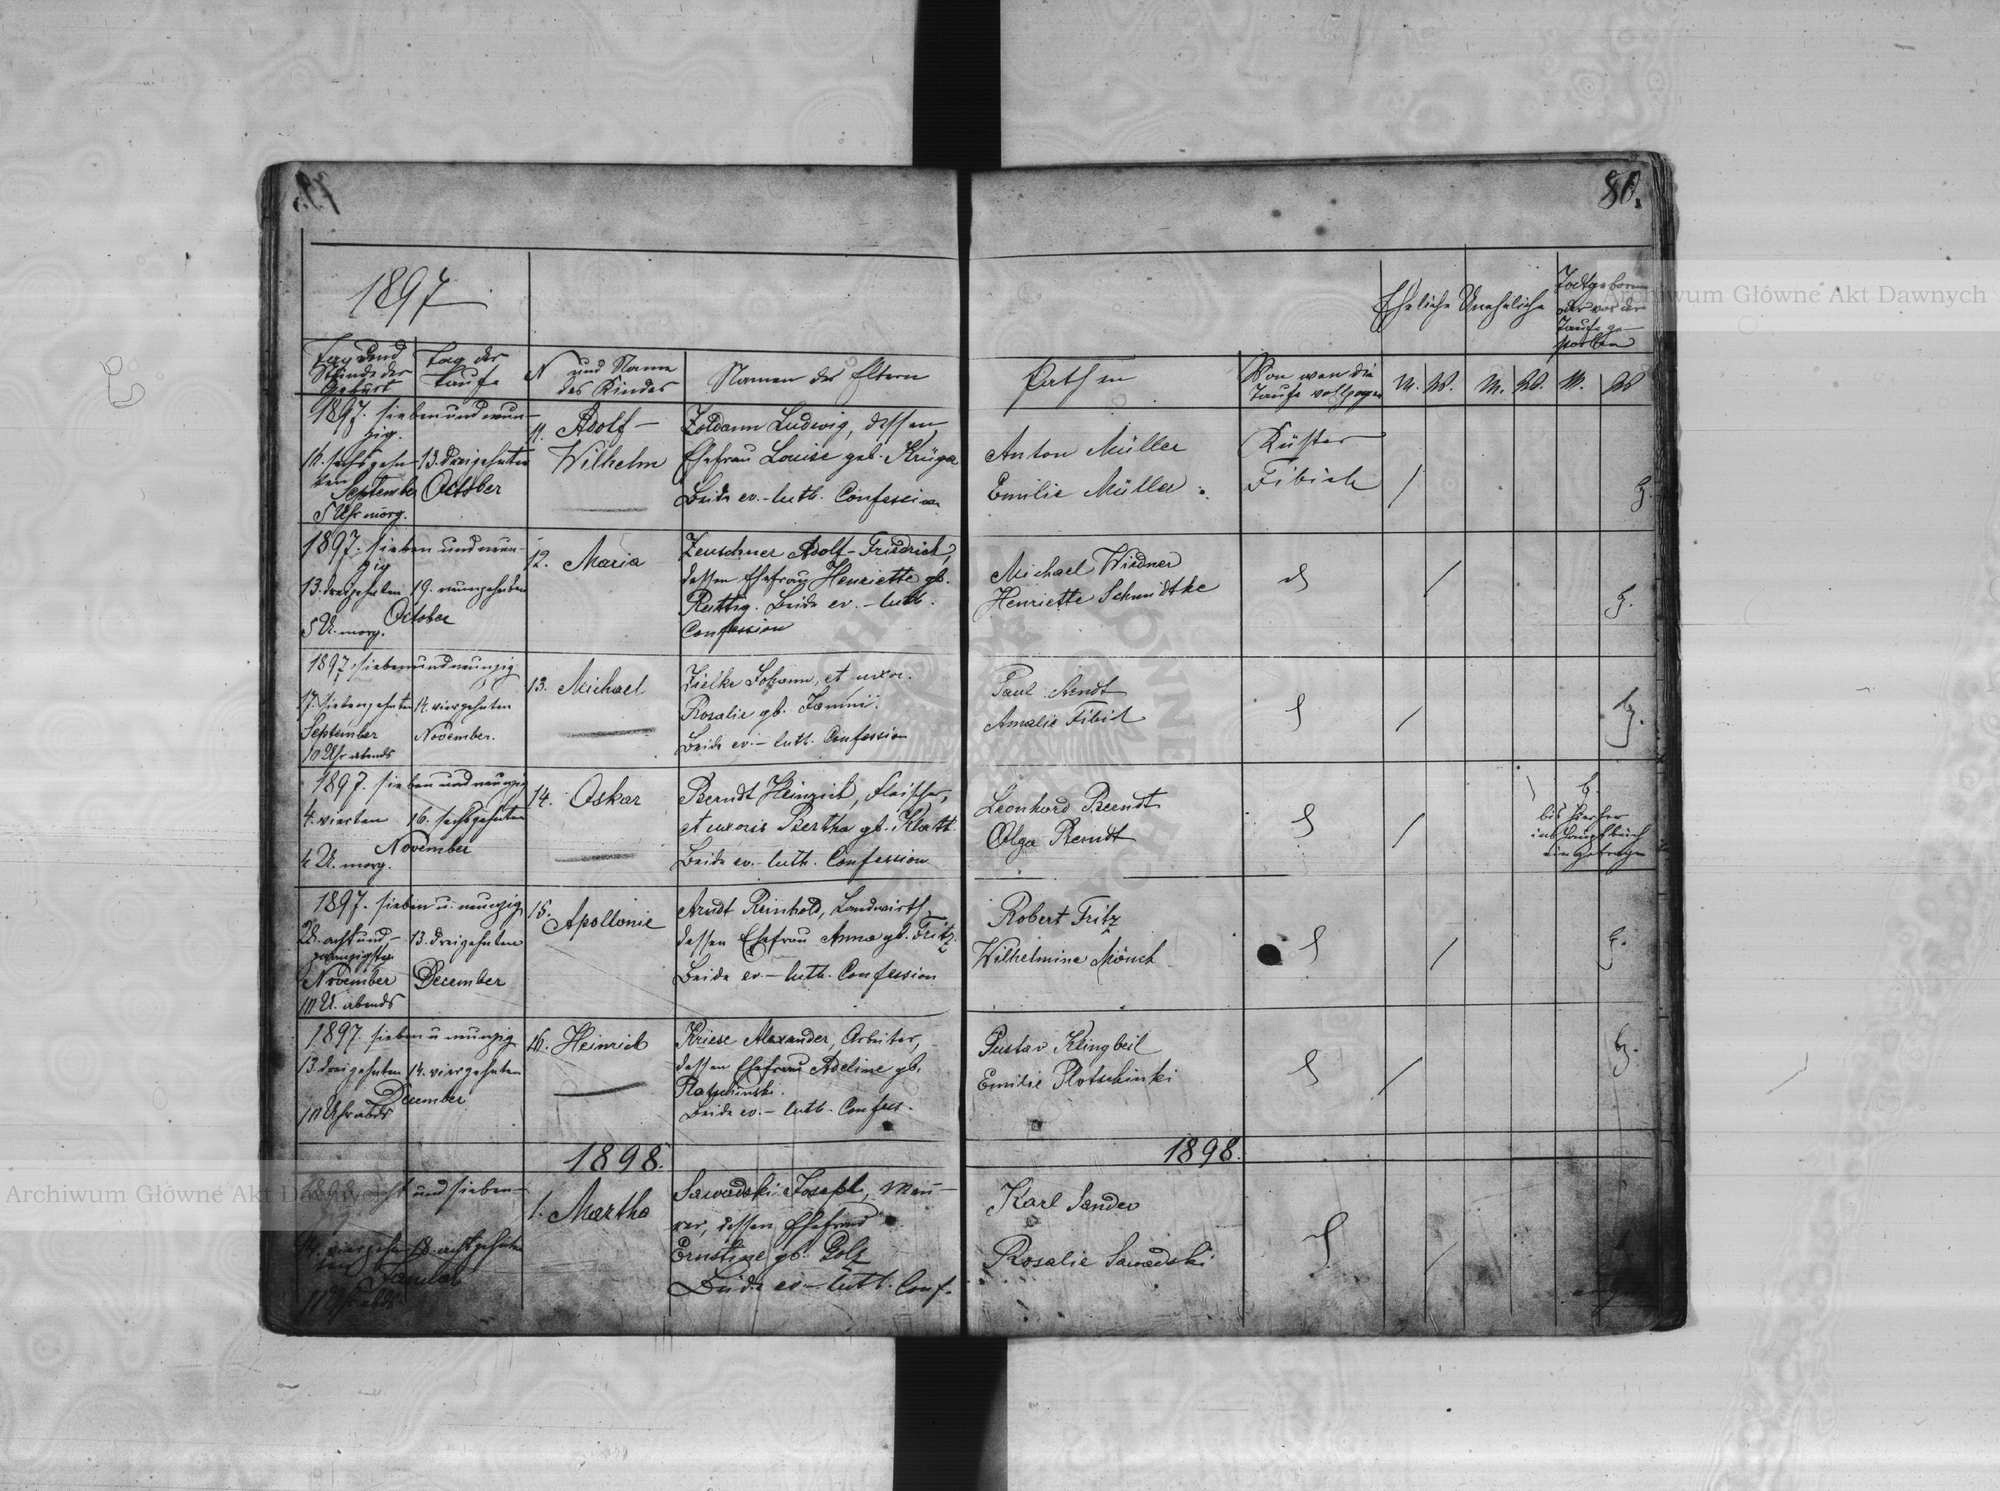 80.
1897
Eheliche Uneheliche
Todtgeborne
oder vor der
Taufe ge-
storben
Tag und
Stunde der
Geburt
Tag der
Taufe
N und Name
des Kindes
Namen der Eltern
Pathen
Von wem die
Taufe vollzogen
M. W. M. W. M. W
1897. sieben und neun-
zig.
16. sechszehn-
ten
September
5 Uhr morg.
13. dreizehnten
October
11. Adolf-
Wilhelm
Ludwig, dessen
Ehefrau Louise geb. Krüger
Beide ev.-luth. Confession
Anton Müller
Emilie Müller
Küster
Fibich
1897. sieben und neun-
zig
13. dreizehnten 19. neunzehnten
October
5 U. morg.
12. Maria
Zeuschner Adolf-Friedrich,
dessen Ehefrau Henriette gb.
Rettig. Beide ev.-luth.
Confession
Michael Wiedner
Henriette Schmidtke
1897 sieben und neunzig
17. siebenzehnten 14. vierzehnten
September November.
10 Uhr abends
13. Michael
Zielke Johann, et uxor.
Rosalie gb.
Beide ev.-luth. Confession
Paul Arndt
Amalie Fibich
1897. sieben und neunzig
4. vierten 16. sechszehnten
November
4 U. morg.
14. Oskar
Berndt Heinrich, Fleischer,
et uxoris Bertha gb. Klatt
Beide ev.-luth. Confession
Leonhard Berndt
Olga Berndt
bis hierher
ins Hauptbuch
eingetragen
1897. sieben u. neunzig
28. acht und-
zwanzigsten
November
10 U. abends
13. dreizehnten
December
15. Apollonie
Arndt Reinhold, Landwirth
dessen Ehefrau Anna gb. Fritz.
Beide ev.-luth. Confession
Robert Fritz
Wilhelmine Mönch
1897. sieben u neunzig
13. dreizehnten 14. vierzehnten
December
10 Uhr abds
16. Heinrich
Kriese Alexander, Arbeiter,
dessen Ehefrau Adeline gb.
Plotschinski.
Beide ev.-luth. Confess.
Gustav Klingbeil
Emilie Plotschinki
1898.
1898.
1898 acht und sieben-
14. vierzehn-
ten
18. achtzehnten
Januar
11 Uhr abds.
1. Martha
Sawadski Joseph, Mau-
rer, dessen Ehefrau
Ernstine gb. Golz
Beide ev-luth. Conf.
Karl Sander
Rosalie Sawadski
Archiwum Główne Akt Dawnych
Archiwum Główne Akt Dawnych